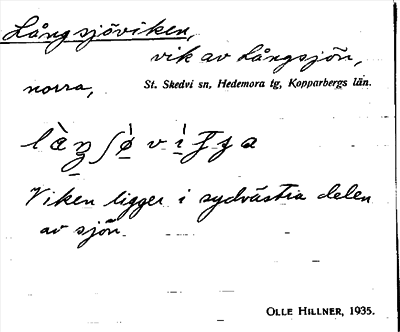 Långsjöviken,
vik av Långsjön,
norra, St. Skedvi sn, Hedemora tg, Kopparbergs län.
Viken ligger i sydvästra delen
av sjön.
OLLE HILLNER, 1935.